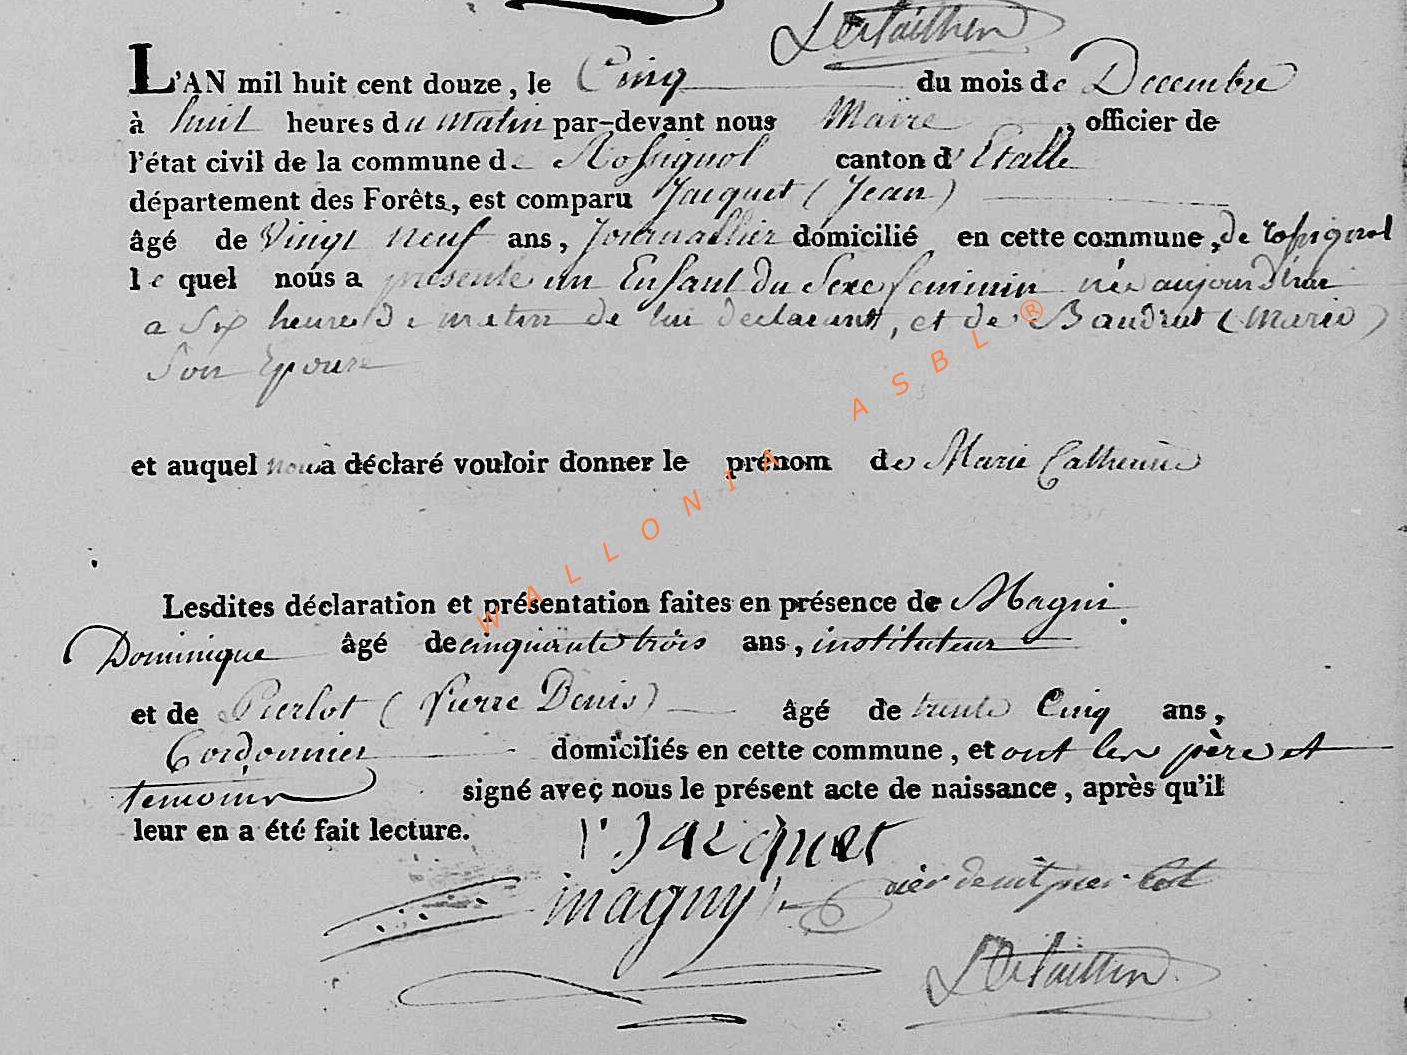 L'AN mil huit cent douze, le Cinq du mois de Decembre
à huit heures du matin par-devant nous Maire, officier de
l'état civil de la commune de Rossignol canton d'Etalle
département des Forêts, est comparu Jacquet (Jean)
âgé de Vingt neuf ans, Journallier domicilié en cette commune, de rossignol
le quel nous a présenté un Enfant du Sexe feminin née aujourd'hui
a Six heures de matin de lui declarant, et de Baudrut (Marie)
Son Epouse
et auquel nous a déclaré vouloir donner le prénom de Marie Catherine
Lesdites déclaration et présentation faites en présence de Magni
Dominique âgé de cinquante trois ans, instituteur
et de Pierlot (Pierre Denis) âgé de trente Cinq ans,
Cordonnier domiciliés en cette commune, et ont les père et
temoins signé avec nous le présent acte de naissance, après qu'il
leur en a été fait lecture.
Jacquet
magny
WALLONIA ASBL ®